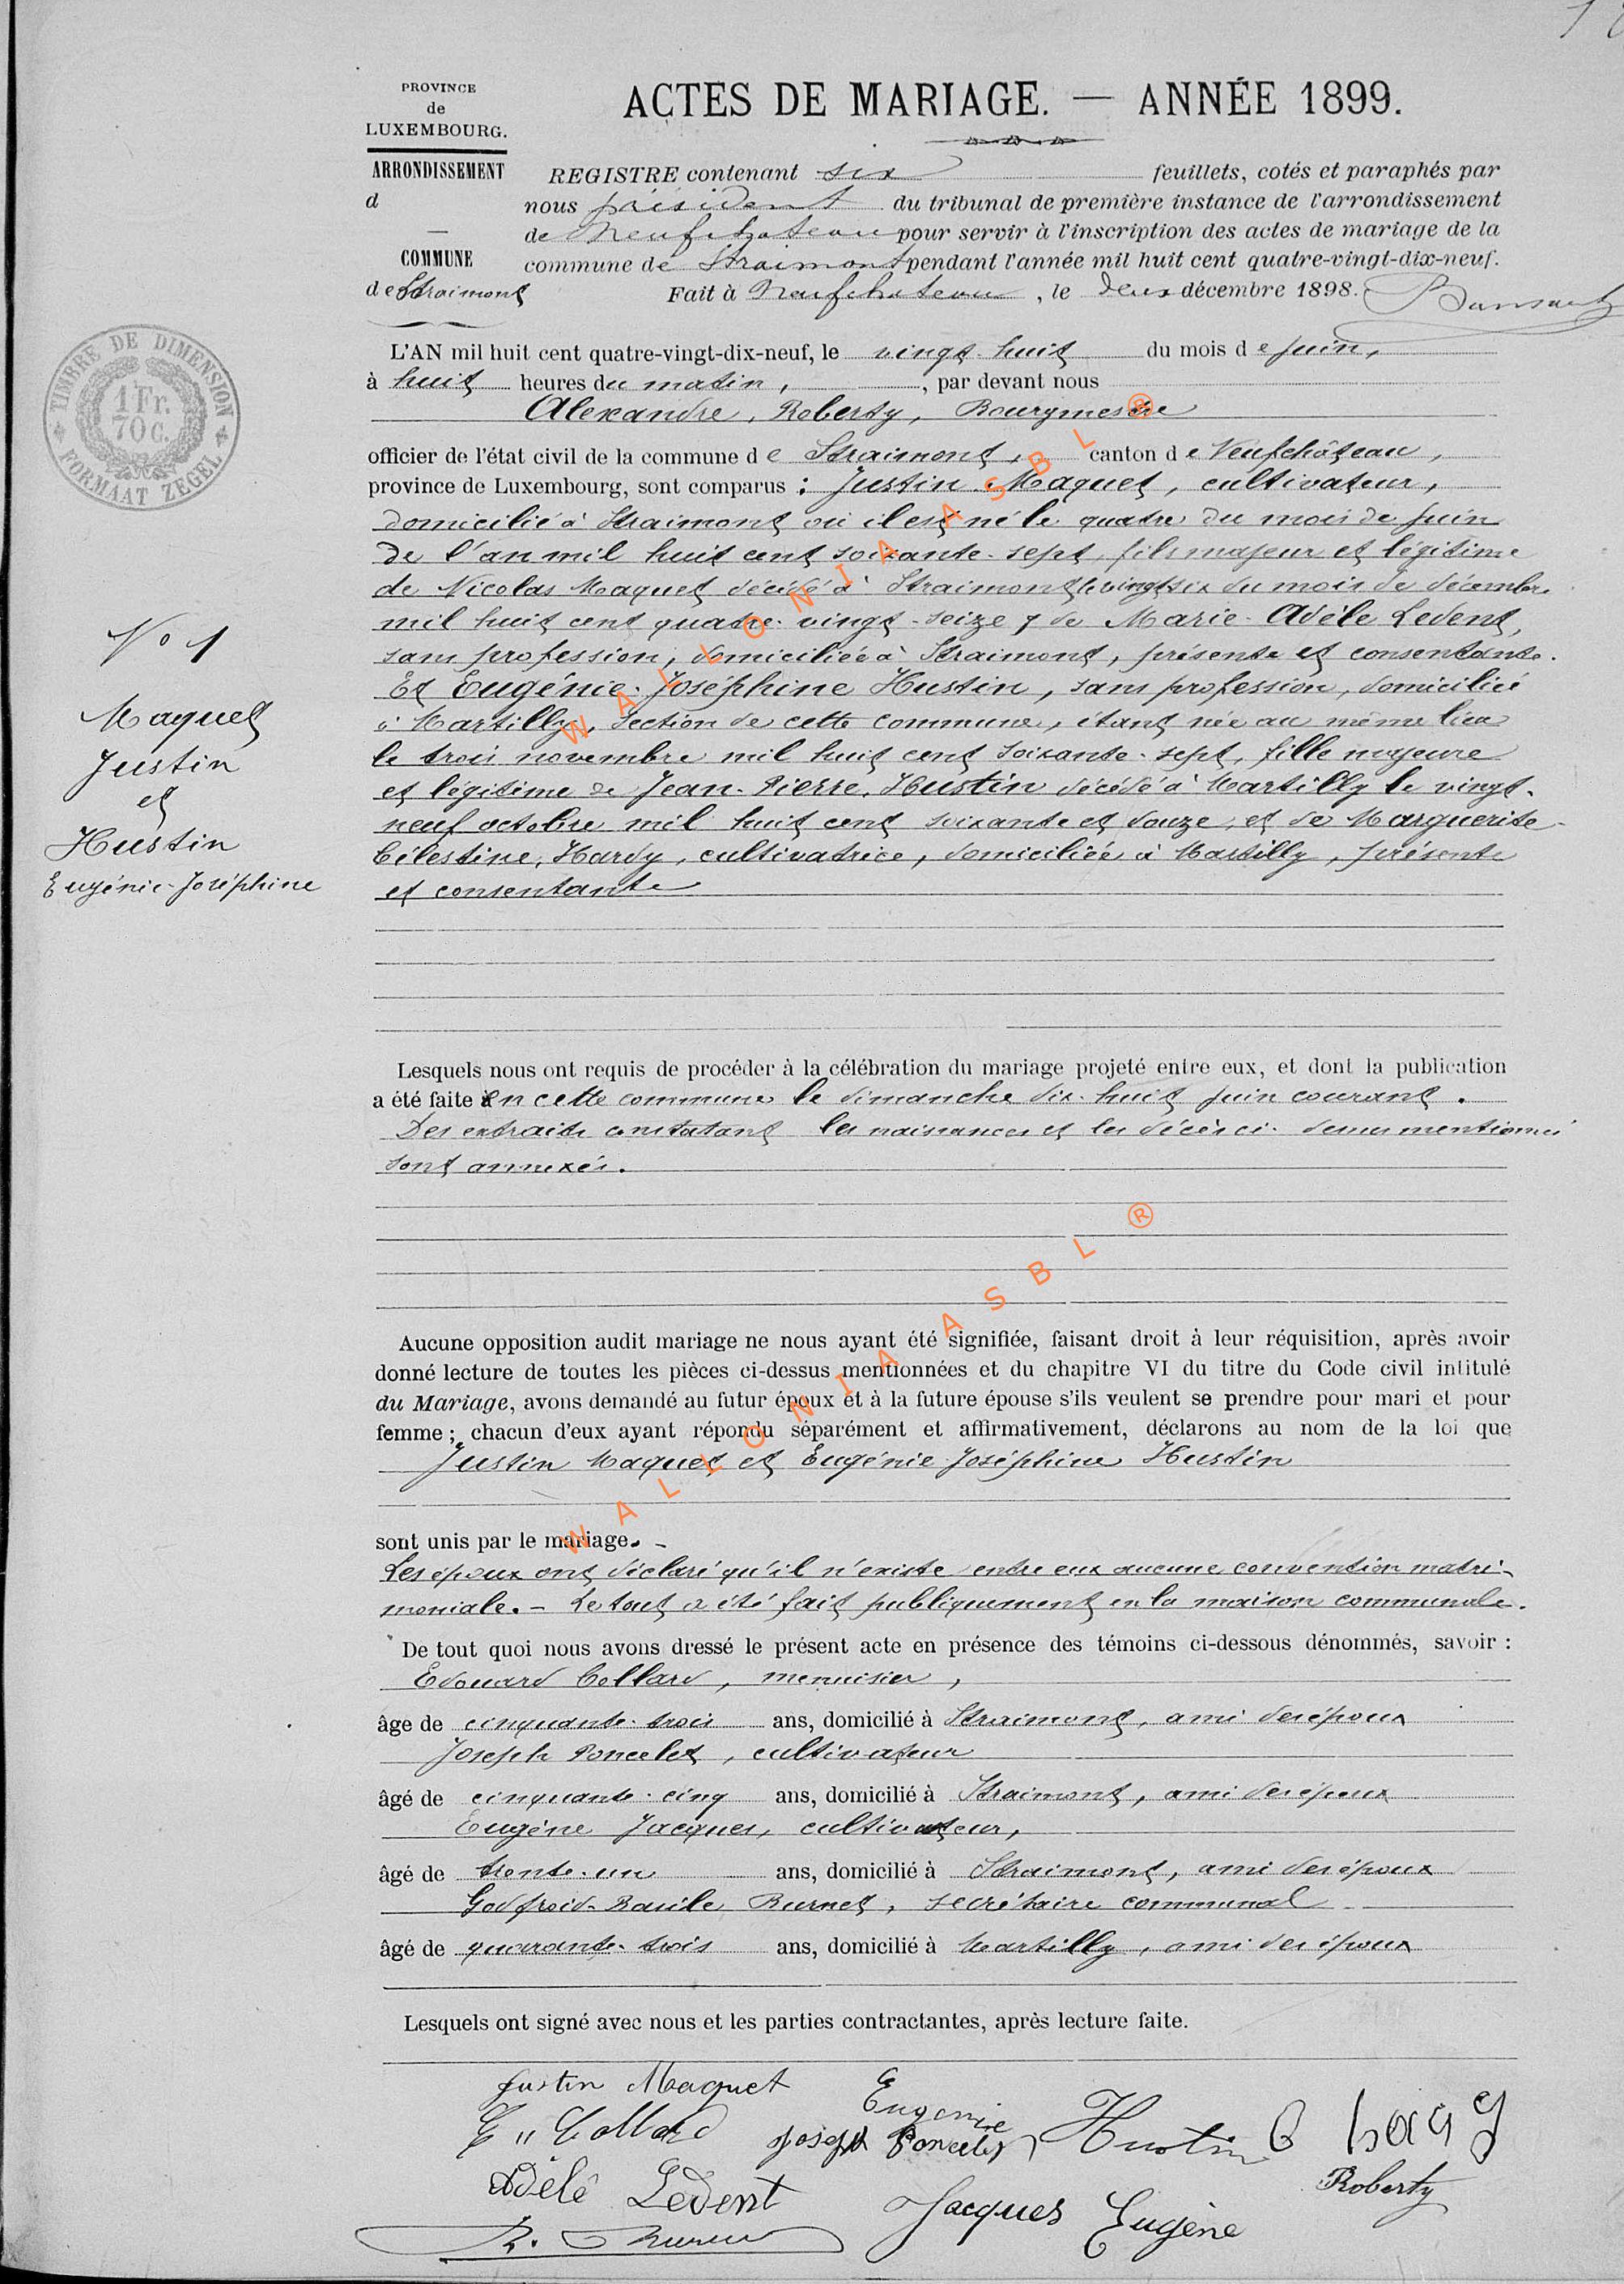 PROVINCE
de
LUXEMBOURG.
ARRONDISSEMENT
d
COMMUNE
de Straimont
ACTES DE MARIAGE. — ANNÉE 1899.
REGISTRE contenant six feuillets, cotés et paraphés par
nous président du tribunal de première instance de l'arrondissement
de Neufchateau pour servir à l'inscription des actes de mariage de la
commune de Straimont pendant l'année mil huit cent quatre-vingt-dix-neuf.
Fait à Neufchateau, le deux décembre 1898.
TIMBRE DE DIMENSION
1 Fr.
70 C.
FORMAAT ZEGEL
L'AN mil huit cent quatre-vingt-dix-neuf, le vingt-huit du mois de juin,
à huit heures du matin, , par devant nous
Alexandre, Roberty, Bourgmestre
officier de l'état civil de la commune de Straimont, canton de Neufchâteau,
province de Luxembourg, sont comparus : Justin Maquet, cultivateur,
domicilié à Straimont où il est né le quatre du mois de juin
de l'an mil huit cent soixante-sept, fils majeur et légitime
de Nicolas Maquet décédé à Straimont le vingt six du mois de décembre
mil huit cent quatre-vingt-seize & de Marie-Adèle Ledent,
sans profession, domiciliée à Straimont, présente et consentante.
Et Eugénie-Joséphine Hustin, sans profession, domiciliée
à Martilly, section de cette commune, étant née au même lieu
le trois novembre mil huit cent soixante-sept, fille majeure
et légitime de Jean-Pierre, Hustin décédé à Martilly le vingt-
neuf octobre mil huit cent soixante et douze, et de Marguerite-
Célestine, Hardy, cultivatrice, domiciliée à Martilly, présente
et consentante
N° 1
Maquet
Justin
et
Hustin
Eugénie-Joséphine
Lesquels nous ont requis de procéder à la célébration du mariage projeté entre eux, et dont la publication
a été faite en cette commune le dimanche dix-huit juin courant.
Des extraits constatant les naissances et les décès ci-dessus mentionnés
sont annexés.
Aucune opposition audit mariage ne nous ayant été signifiée, faisant droit à leur réquisition, après avoir
donné lecture de toutes les pièces ci-dessus mentionnées et du chapitre VI du titre du Code civil intitulé
du Mariage, avons demandé au futur époux et à la future épouse s'ils veulent se prendre pour mari et pour
femme ; chacun d'eux ayant répondu séparément et affirmativement, déclarons au nom de la loi que
Justin Maquet et Eugénie-Joséphine Hustin
sont unis par le mariage. -
Les époux ont déclaré qu'il n'existe entre eux aucune convention matri-
moniale. - Le tout a été fait publiquement en la maison communale.
De tout quoi nous avons dressé le présent acte en présence des témoins ci-dessous dénommés, savoir :
Edouard Collard, menuisier,
âge de cinquante-trois ans, domicilié à Straimont, ami des époux
Joseph Poncelet, cultivateur
âgé de cinquante-cinq ans, domicilié à Straimont, ami des époux
Eugène Jacques, cultivateur,
âgé de trente-un ans, domicilié à Straimont, ami des époux
Godfroid-Basile Burnet, secrétaire communal
âgé de quarante-trois ans, domicilié à Martilly, ami des époux
Lesquels ont signé avec nous et les parties contractantes, après lecture faite.
Justin Maquet Eugenie Hustin
E Collard Joseph Poncelet
Adèle Ledent Roberty
Jacques Eugène
WALLONIA ASBL ®
WALLONIA ASBL ®